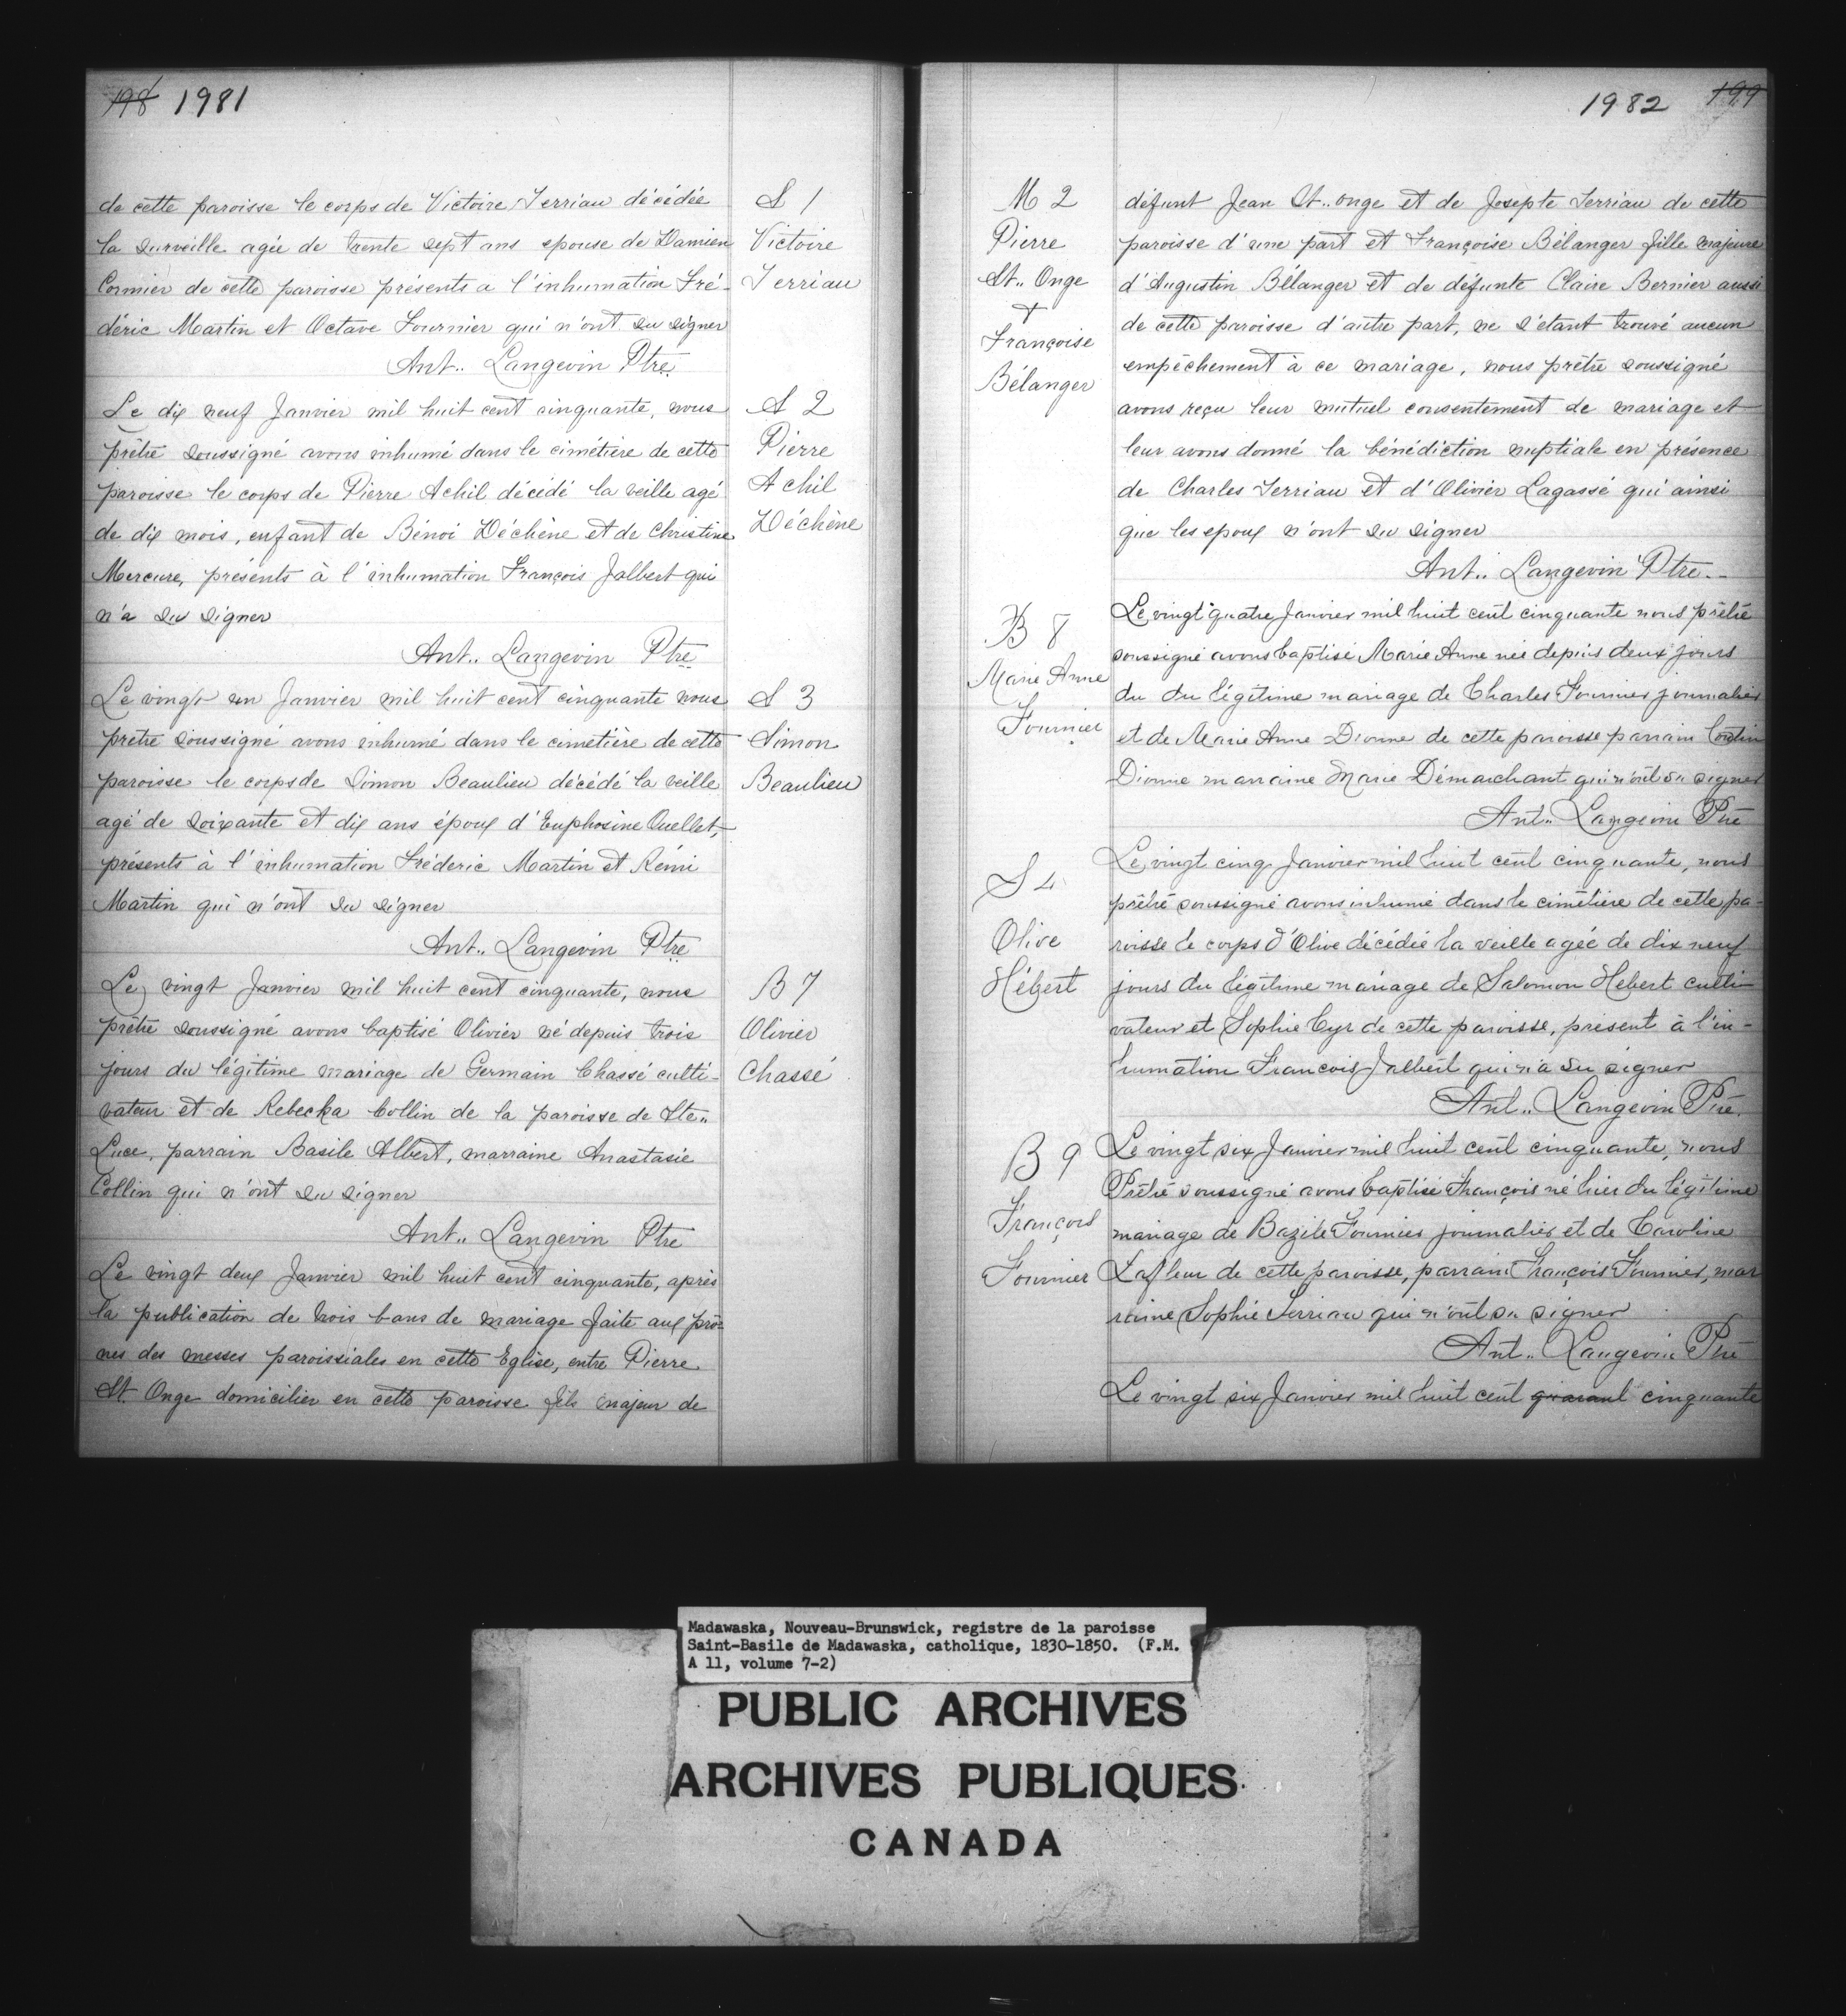 198 1981
de cette paroisse le corps de Victoire Terriau décédée
la surveille agée de trente sept ans epouse de Damien
Cormier de cette paroisse présents a l'inhumation Fré-
déric Martin et Octave Fournier qui n'ont su signer
Ant.. Langevin Ptre
S 1
Victoire
Terriau
Le dix neuf Janvier mil huit cent cinquante, nous
prêtre soussigné avons inhumé dans le cimétière de cette
paroisse le corps de Pierre Achil décédé la veille agé
de dix mois, enfant de Bénoi Déchène et de Christine
Mercure, présents à l'inhumation François Jalbert qui
n'a su signer
Ant.. Langevin Ptre
S 2
Pierre
Achil
Déchêne
Le vingt un Janvier mil huit cent cinquante nous
prêtre soussigné avons inhumé dans le cimetière de cette
paroisse le corps de Simon Beaulieu décédé la veille
agé de soixante et dix ans époux d'Euphosine Ouellet,
présents à l'inhumation Fréderic Martin et Rémi
Martin qui n'ont su signer
Ant.. Langevin Ptre
S 3
Simon
Beaulieu
Le vingt Janvier mil huit cent cinquante, nous
prêtre soussigné avons baptisé Olivier né depuis trois
jours du légitime mariage de Germain Chassé culti-
vateur et de Rebecka Collin de la paroisse de Ste..
Luce, parrain Basile Albert, marraine Anastasie
Collin qui n'ont su signer
Ant.. Langevin Ptre
B 7
Olivier
Chassé
Le vingt deux Janvier mil huit cent cinquante, après
la publication de trois bans de mariage faite aux prô-
nes des messes paroissiales en cette Eglise, entre Pierre
St. Onge domicilier en cette paroisse fils majeur de
1982 199
M 2
Pierre
St.. Onge
+
Françoise
Bélanger
défunt Jean St.. onge et de Josepte Terriau de cette
paroisse d'une part et Françoise Bélanger fille majeure
d'Augustin Bélanger et de défunte Claire Bernier aussi
de cette paroisse d'autre part, ne s'étant trouvé aucun
empêchement à ce mariage, nous prêtre soussigné
avons reçu leur mutuel consentement de mariage et
leur avons donné la bénédiction nuptiale en présence
de Charles Terriau et d'Olivier Lagassé qui ainsi
que les epoux n'ont su signer
Ant.. Langevin Ptre
B 8
Marie Anne
Fournier
Le vingt quatre Janvier mil huit cent cinquante nous prêtre
soussigné avons baptisé Marie Anne née depuis deux jours
du du légitime mariage de Charles Fournier journalier
et de Marie Anne Dionne de cette paroisse parrain
Dionne marraine Marie Démarchant qui n'ont su signer
Ant.. Langevin Ptre
S 4
Olive
Hébert
Le vingt cinq Janvier mil huit cent cinquante, nous
prêtre soussigné avons inhumé dans le cimétière de cette pa-
roisse le corps d'Olive décédée la veille agée de dix neuf
jours du légitime mariage de Salomon Hebert culti-
vateur et Sophie Cyr de cette paroisse, présent à l'in-
humation François Jalbert qui n'a su signer
Ant.. Langevin Ptre
B 9
François
Fournier
Le vingt six Janvier mil huit cent cinquante, nous
Prêtre soussigné avons baptisé François né hier du légitime
mariage de Bazile Fournier journalier et de Caroline
Lafleur de cette paroisse, parrain François Fournier, mar
raine Sophie Terriau qui n'ont su signer
Ant.. Langevin Ptre
Le vingt six Janvier mil huit cent quarant cinquante
Madawaska, Nouveau-Brunswick, registre de la paroisse
Saint-Basile de Madawaska, catholique, 1830-1850. (F.M.
A 11, volume 7-2)
PUBLIC ARCHIVES
ARCHIVES PUBLIQUES
CANADA